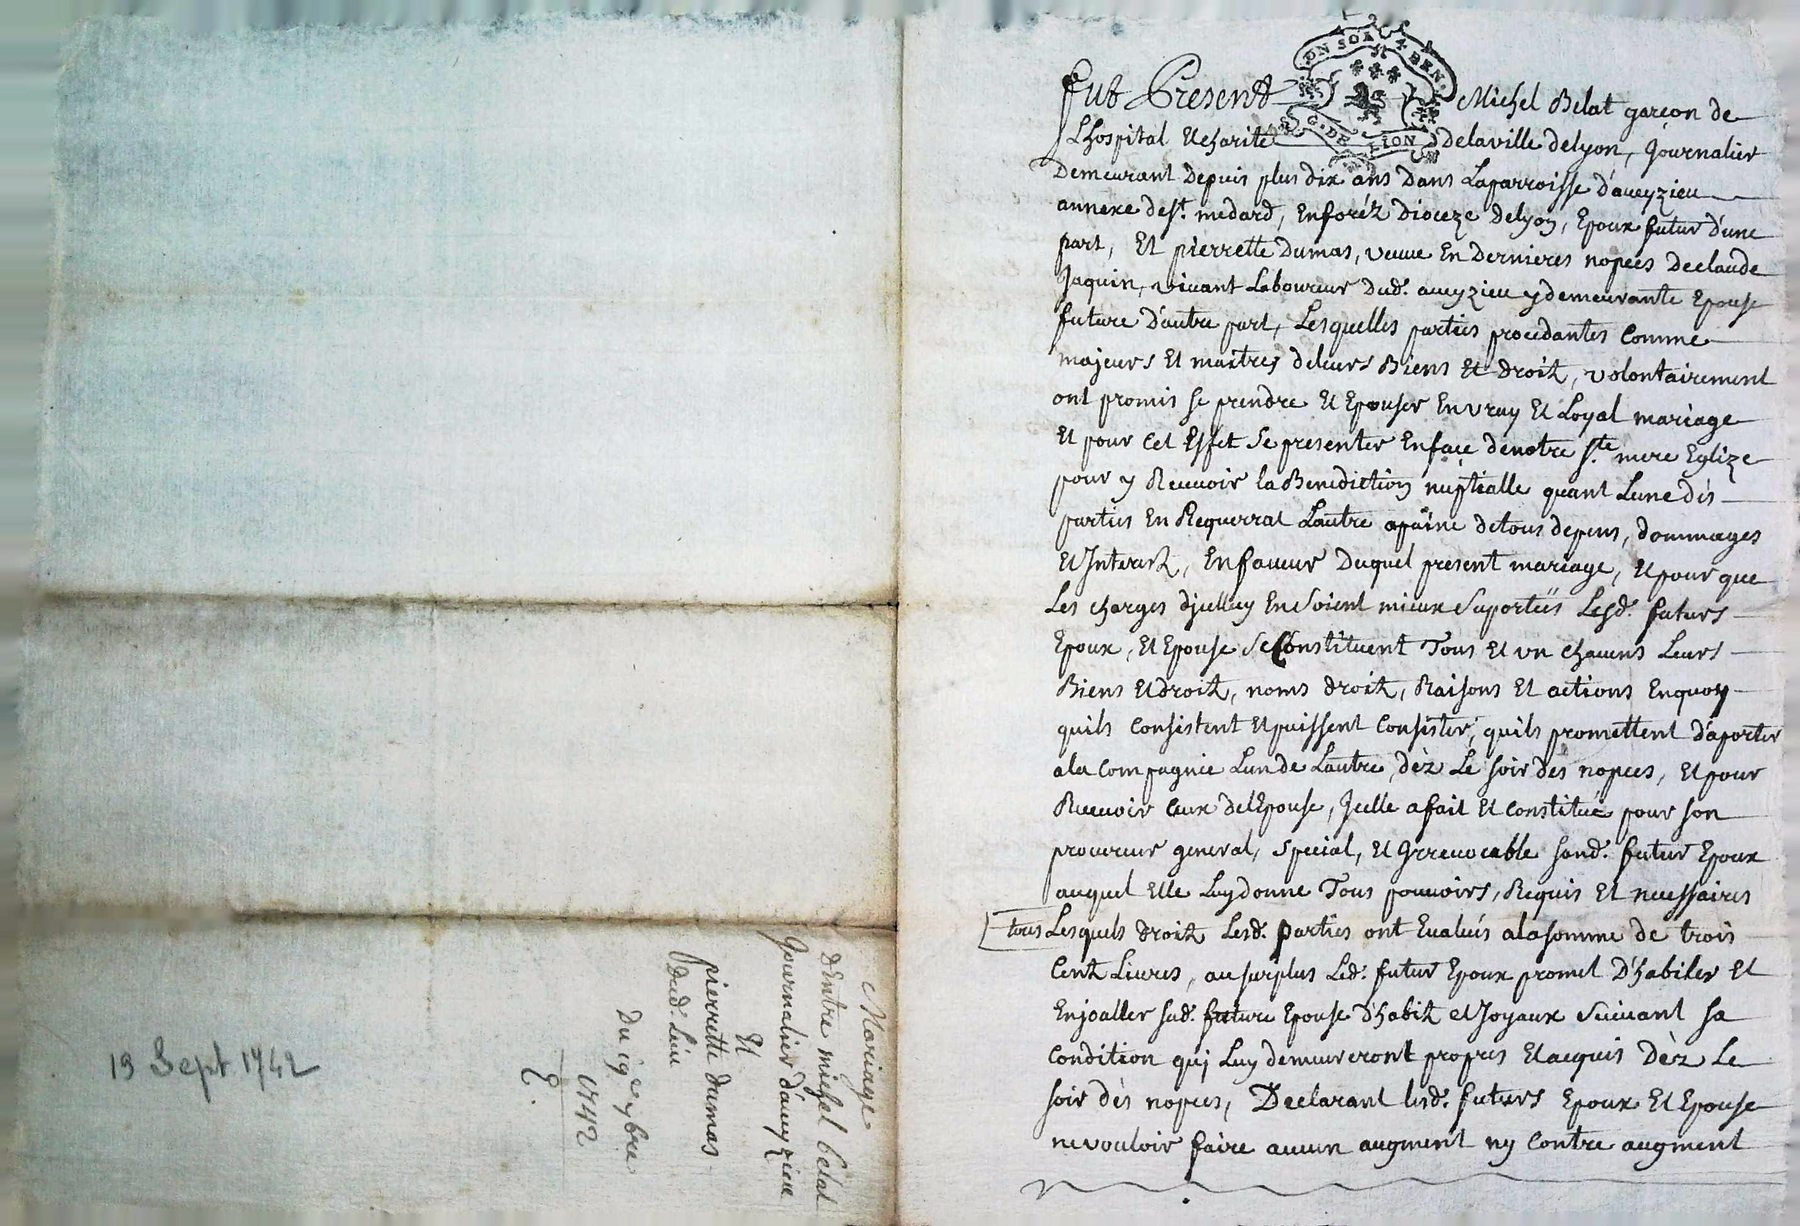 19 Sept 1742
Mariage
d'Entre michel belat
Journalier d'aueyzieu
Et
pierrette dumas
Dud. Lieu
Du 19e 7bre
1742
E.
ON SOR 4 DEN.
G. DE LION
fut Present Michel Belat garçon de
Lhospital Et charité delaville delyon, Journalier
Demeurant depuis plus dix ans dans Laparroisse d'aueyzieu
annexe de st. medard, Enforéz dioceze delyon, Epoux futur d'une
part, Et pierrette dumas, veuue En dernieres nopces declaude
Jaquin, viuant Laboureur dud. aueyzieu y demeurante Epouse
future d'autre part, Lesquelles parties procedantes Comme
majeurs Et maitres deleurs Biens Et droitz, volontairement
ont promis se prendre Et Epouser En vray Et Loyal mariage
Et pour Cet Effet Se presenter Enface denotre ste. mere Eglize
pour y Receuoir la Benediction nuptialle quant Lune dés
parties En Requerrat Lautre apaine detous depens, dommages
Et Interetz, Enfaueur duquel present mariage, Et pour que
Les charges d'jcelluy En soient mieux Suportéés Lesd. futurs
Epoux, Et Epouse Se Constituent Tous Et vn chacuns Leurs
Biens Et droitz, noms droitz, Raisons Et actions Enquoy
quils Consistent Et puissent Consister, quils promettent d'aporter
ala Compagnie Lun de Lautre, déz Le soir dés nopces, Et pour
Receuoir Ceux del'Epouse, Jcelle a fait Et Constitué pour son
procureur general, Special, Et Jrreuocable sond. futur Epoux
auquel Elle Luy donne Tous pouuoirs, Requis Et necessaires
tous Lesquels droitz Lesd. parties ont Eualués alasomme de trois
Cent Liures, au surplus Led. futur Epoux promet D'habiler Et
Enjoaller sad. future Epouse d'habitz et Joyaux Suiuant sa
Condition quj Luy demeureront propres Et acquis Déz Le
soir dés nopces, Declarant lesd. futurs Epoux Et Epouse
ne vouloir faire aucun augment ny Contre augment